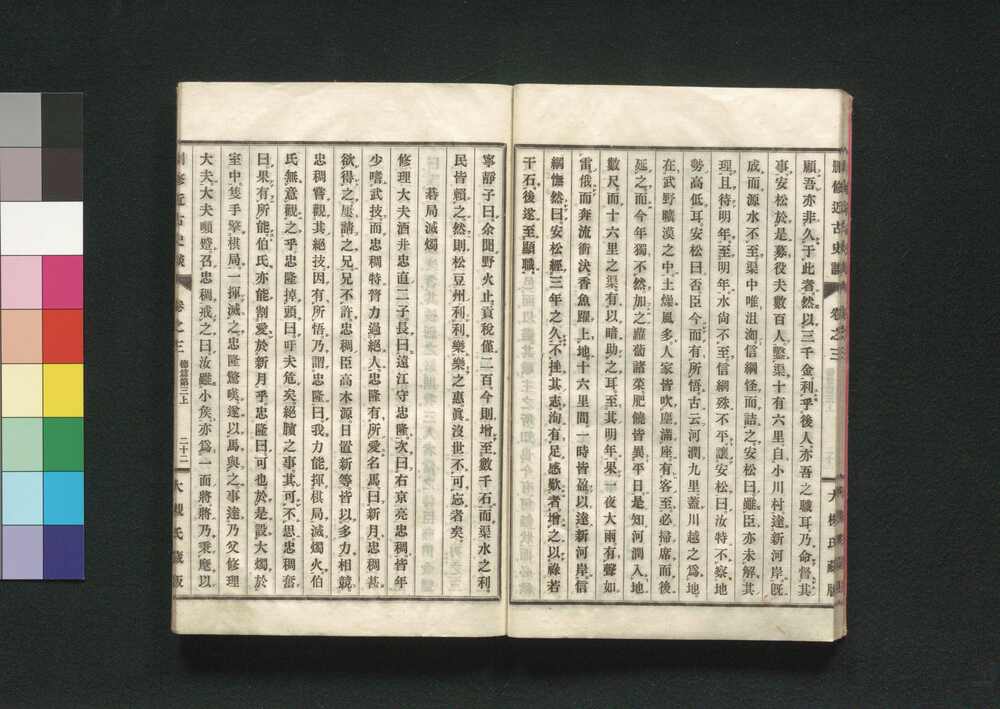 刪修近古史談 卷之三
願吾亦非久于此者然以三千金利乎後人亦吾之職耳乃命督其
事安松於是募役夫數百人鑿渠十有六里自小川村達新河岸既
成而源水不至渠中唯沮洳信綱怪而詰之安松曰雖臣亦未解其
理且待明年至明年水尙不至信綱殊不平讓安松曰汝特不察地
勢高低耳安松曰否臣今而有所悟古云河潤九里蓋川越之爲地
在武野曠漠之中土燥風多人家皆吹塵滿座有客至必掃席而後
延之而今年獨不然加之蘿蔔諸菜肥饒皆異平日是知河潤入地
數尺而十六里之渠有以暗助之耳至其明年果一夜大雨有聲如
雷俄而奔流衝決香魚躍上地十六里間一時皆盈以達新河岸信
綱憮然曰安松經三年之久不挫其志洵有足感歎者增之以祿若
干石後遂至顯職
大槻氏藏版
寧靜子曰余聞野火止貢稅僅二百今則增至數千石而渠水之利
民皆賴之然則松豆州利利樂樂之惠眞沒世不可忘者矣
棊局滅燭
修理大夫酒井忠直二子長曰遠江守忠隆次曰右京亮忠稠皆年
少嗜武技而忠稠特膂力過絕人忠隆有所愛名馬曰新月忠稠甚
欲得之屢請之兄兄不許忠稠臣高木源日置新等皆以多力相競
忠稠嘗觀其絕技因有所悟乃謂忠隆曰我力能揮棋局滅燭火伯
氏無意觀之乎忠隆掉頭曰吁夫危矣絕臏之事其可不思忠稠奮
曰果有所能伯氏亦能割愛於新月乎忠隆曰可也於是設大燭於
室中隻手擎棋局一揮滅之忠隆驚嘆遂以馬與之事達乃父修理
大夫大夫顰蹙召忠稠戒之曰汝雖小矦亦爲一面將將乃秉麾以
刪修近古史談 卷之三 德篇第三上 二十二 大槻氏藏版